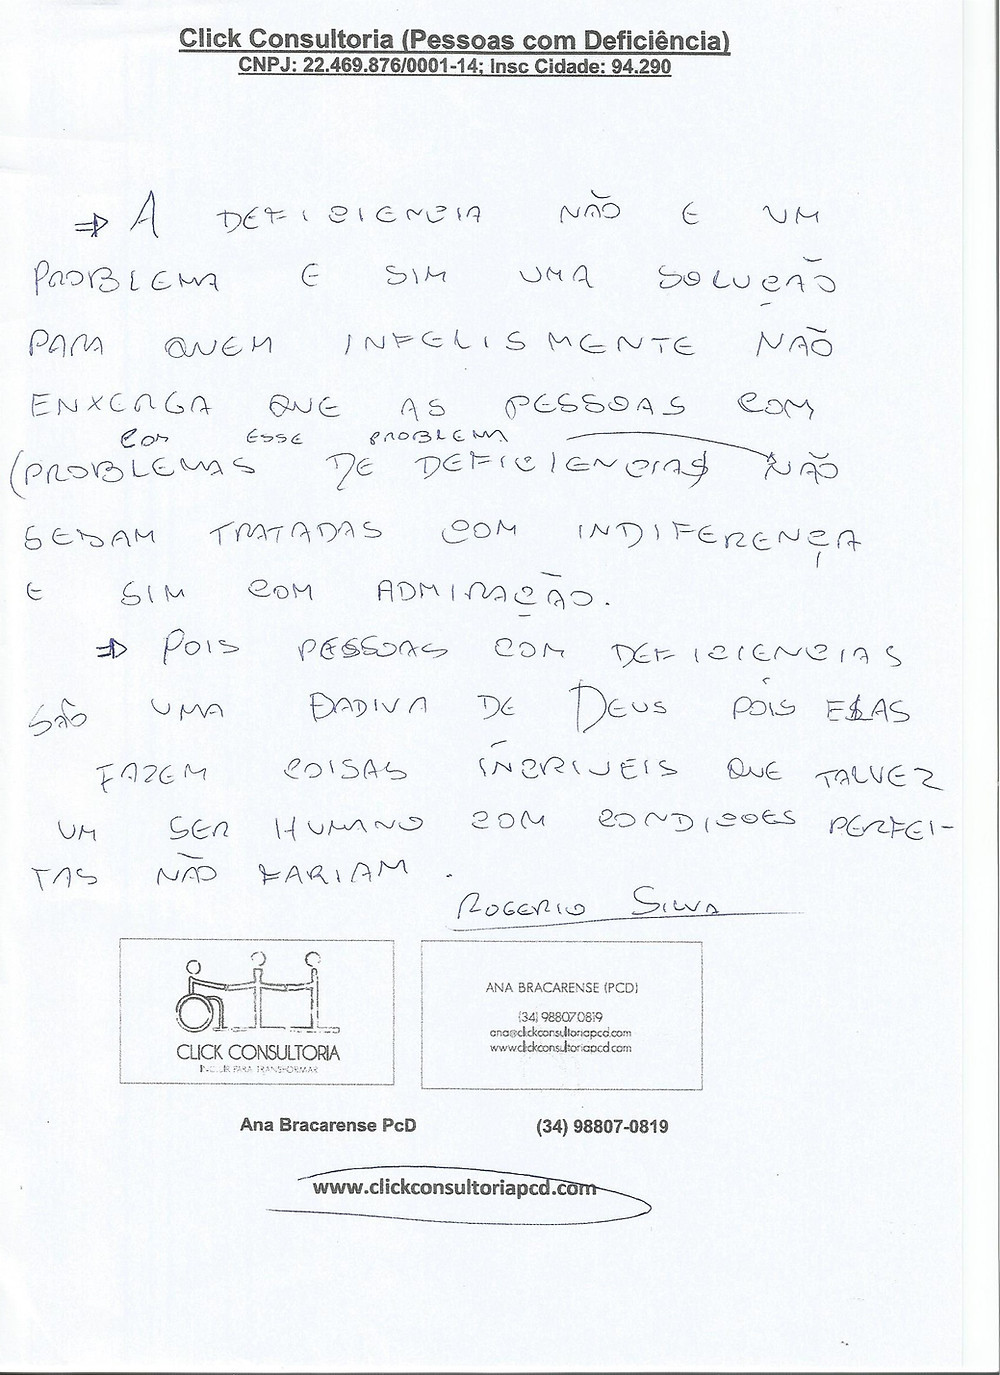 Click Consultoria (Pessoas com Deficiência)
CNPJ: 22.469.876/0001-14; Insc Cidade: 94.290
⇒ A DEFICIENCIA NÃO E UM
PROBLEMA E SIM UMA SOLUÇÃO
PARA QUEM INFELISMENTE NÃO
ENXERGA QUE AS PESSOAS COM
COM ESSE PROBLEMA
(PROBLEMAS DE DEFICIENCIAS NÃO
SEJAM TRATADAS COM INDIFERENÇA
E SIM COM ADMIRAÇÃO.
⇒ POIS PESSOAS COM DEFICIENCIAS
SÃO UMA DADIVA DE DEUS POIS ELAS
FAZEM COISAS INCRIVEIS QUE TALVEZ
UM SER HUMANO COM CONDIÇOES PERFEI-
TAS NÃO FARIAM.
ROGERIO SILVA
CLICK CONSULTORIA
INCLUIR PARA TRANSFORMAR
ANA BRACARENSE (PCD)
(34) 988070819
ana@clickconsultoriapcd.com
www.clickconsultoriapcd.com
Ana Bracarense PcD (34) 98807-0819
www.clickconsultoriapcd.com